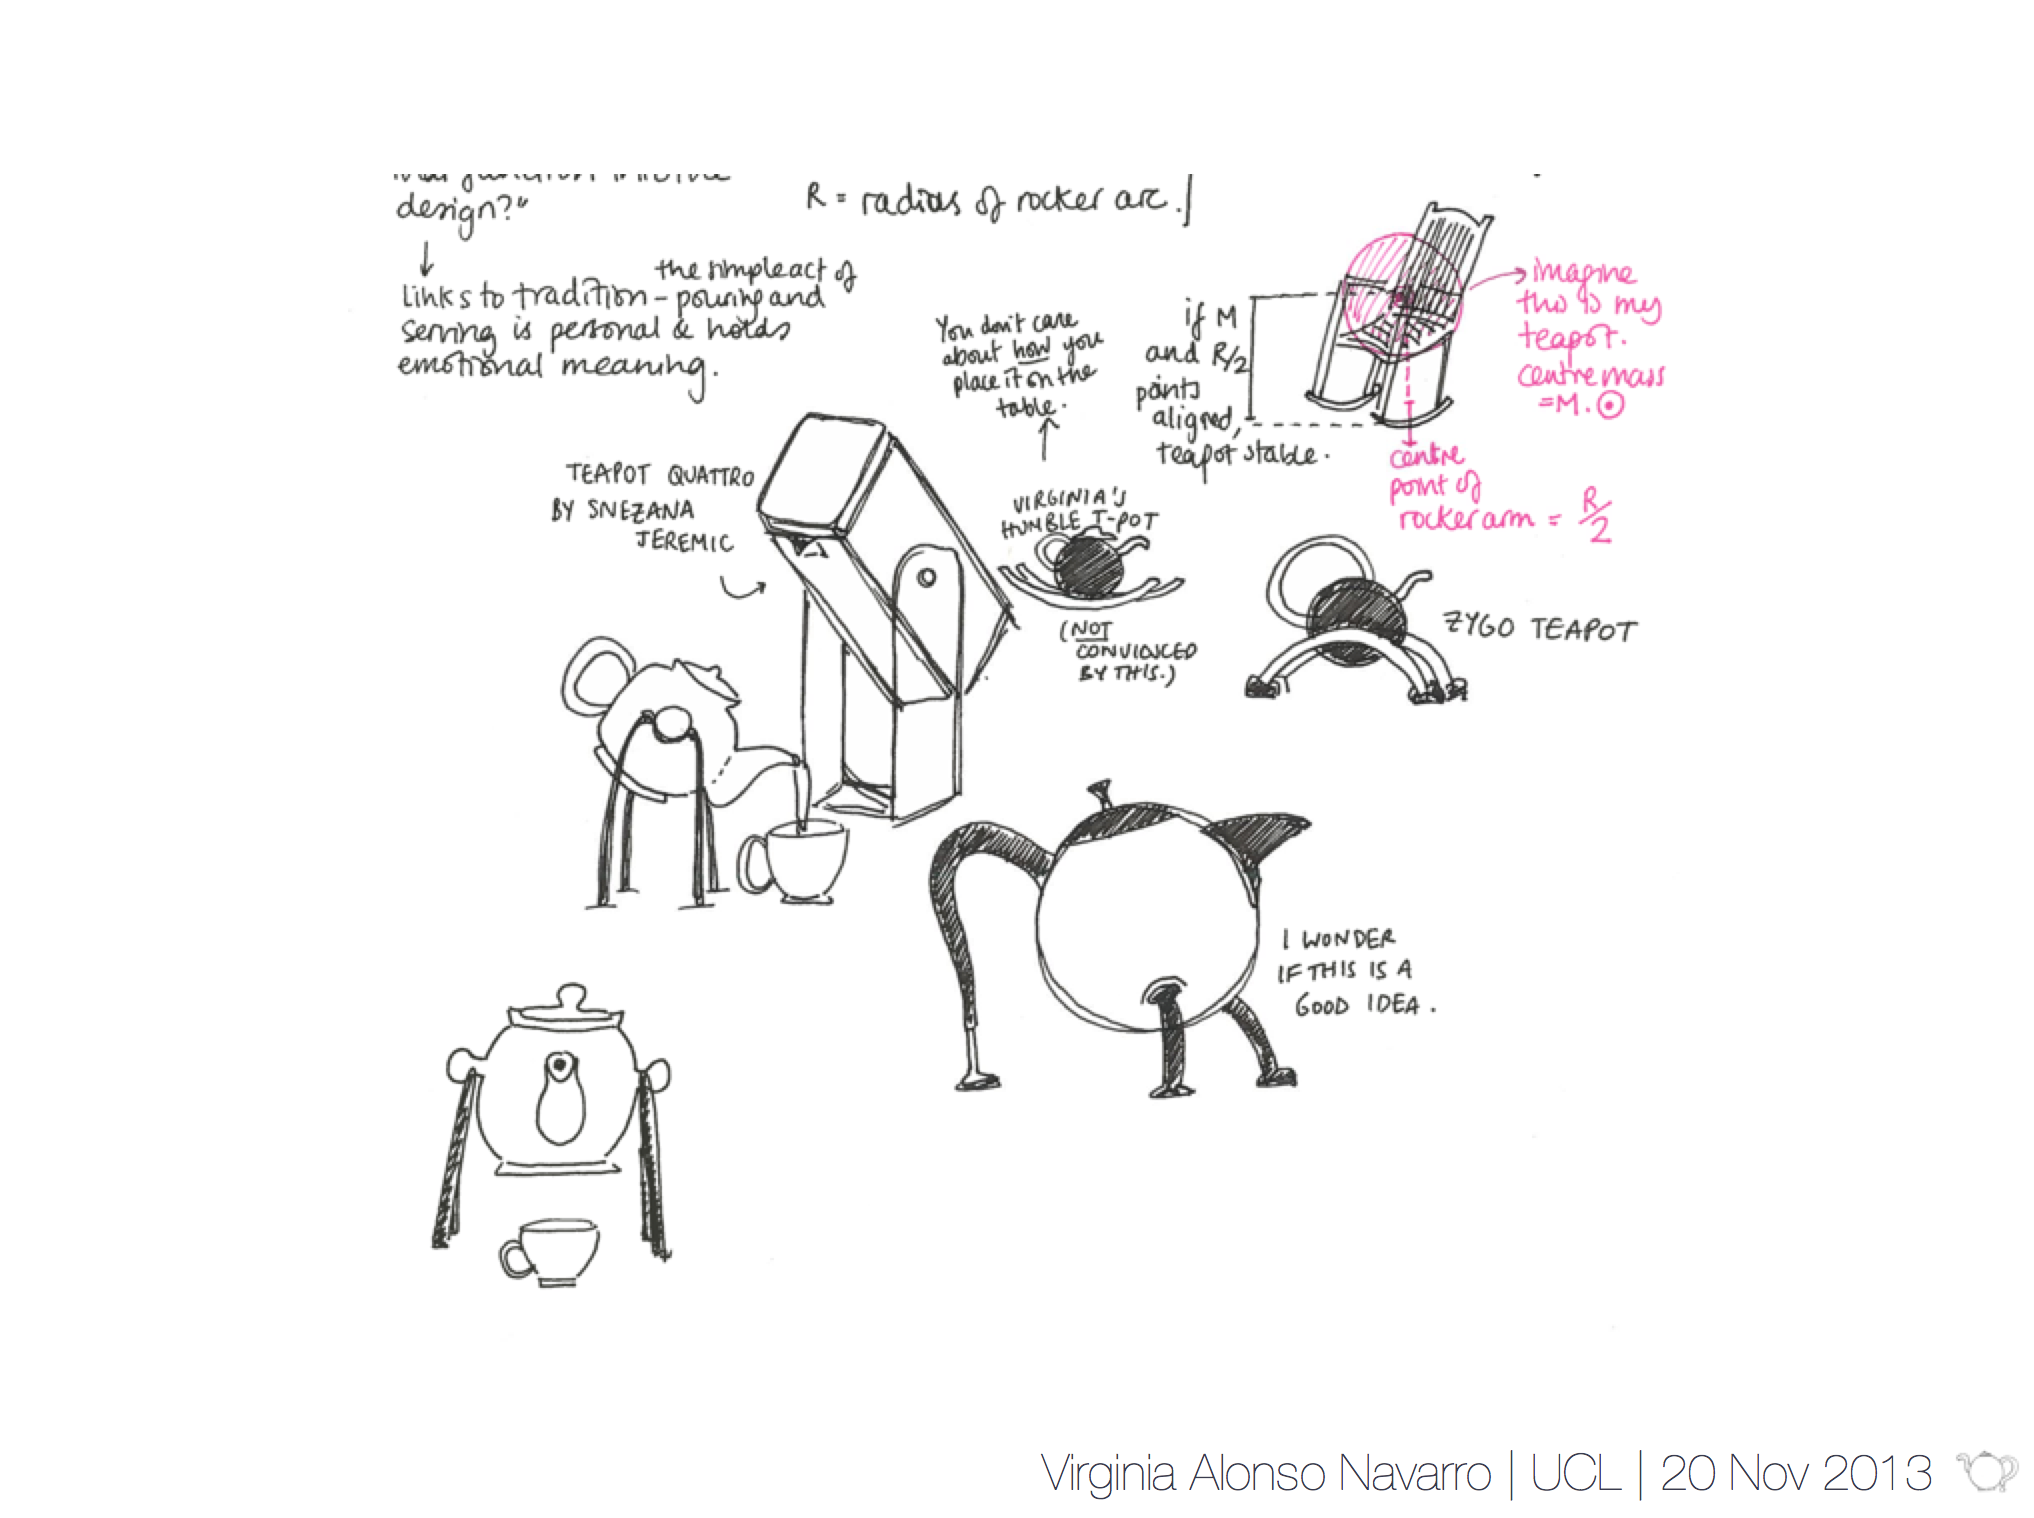 design?"
↓
the simple act of
links to tradition - pouring and
serving is personal & holds
emotional meaning.
R = radius of rocker arc.
You don't care
about how you
place it on the
table.
if M
and R/2
points
aligned,
teapot stable.
imagine
this is my
teapot.
centre mass
=M.
centre
point of
rocker arm = R/2
TEAPOT QUATTRO
BY SNEZANA
JEREMIC
VIRGINIA'S
HUMBLE T-POT
(NOT
CONVIONCED
BY THIS.)
ZYGO TEAPOT
I WONDER
IF THIS IS A
GOOD IDEA.
Virginia Alonso Navarro | UCL | 20 Nov 2013